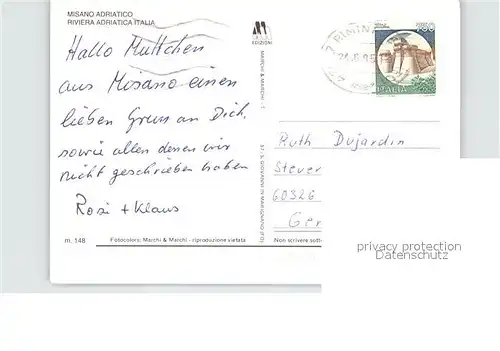 MISANO ADRIATICO
RIVIERA ADRIATICA ITALIA
Hallo Muttchen
aus Misano einen
lieben Gruss an Dich,
sowie allen denen wir
nicht geschrieben haben
Rosi + Klaus
m. 148
Fotocolors: Marchi & Marchi - riproduzione vietata
EDIZIONI
MARCHI & MARCHI
S. GIOVANNI IN MARIGNANO (FO)
RIMINI
ITALIA
Ruth Dujardin
Stever
60326
Ger
Non scrivere sott
privacy protection
Datenschutz